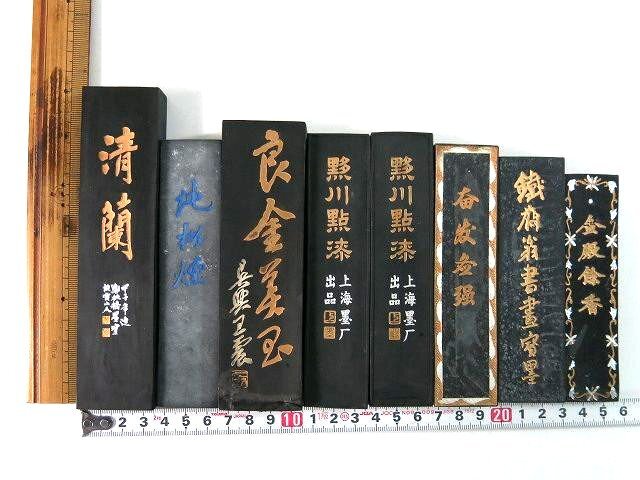 清蘭
甲子年造
良金美玉
吳興王震
黟川點漆
上海墨厂
出品
黟川點漆
上海墨厂
出品
奋发图强
鐵齋翁書畫寶墨
金殿餘香
1 2 3 4 5 6 7 8 9 10 1 2 3 4 5 6 7 8 9 20 1 2 3 4 5 6